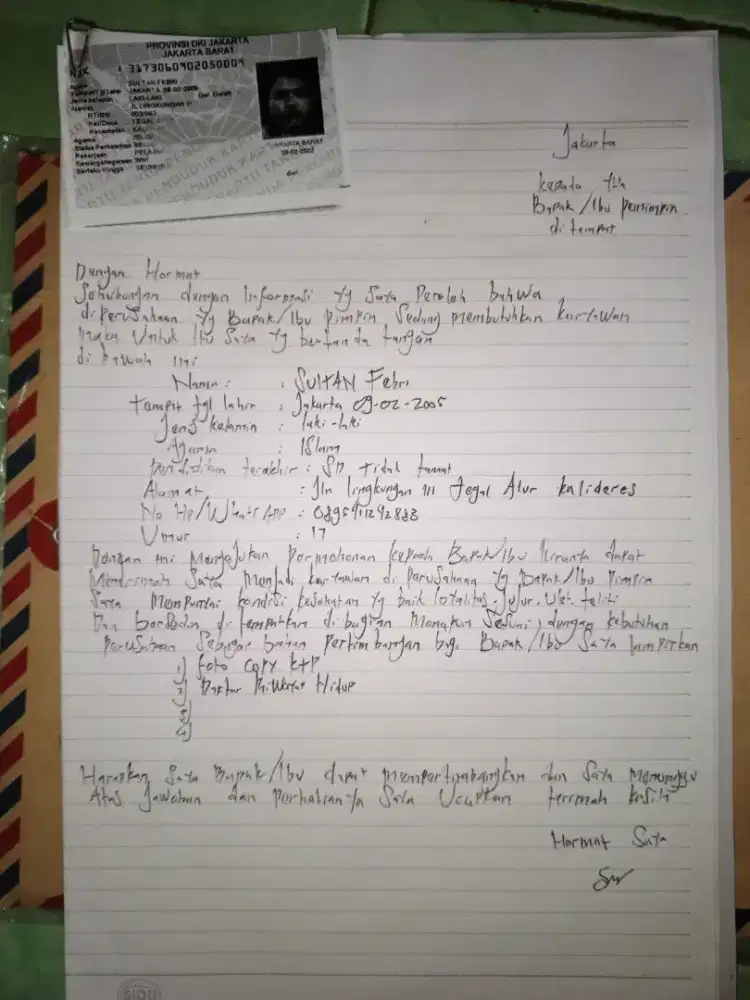 PROVINSI DKI JAKARTA
JAKARTA BARAT
NIK : 3173060902050009
SULTAN FEBRI
JAKARTA 09-02-2005
LAKI-LAKI Gol Darah
JL LINGKUNGAN III
RT/RW
Kel/Desa : TEGAL
Kecamatan : KAL
Agama
Status Perkawinan
Pekerjaan : PELAJ
Kewarganegaraan WNI
Berlaku Hingga
JAKARTA BARAT
09-02-2022
Jakarta
kepada Yth
Bapak/Ibu pemimpin
di tempat
Dengan Hormat
Sehubungan dengan Informasi Yg Saya Peroleh bahwa
diperusahaan Yg Bapak/Ibu Pimpin Sedang membutuhkan karyawan
maka Untuk Itu Saya Yg bertanda tangan
di bawah ini
Nama : : SUlTAN Febri
Tempat tgl lahir : Jakarta 09-02-2005
Jenis kelamin : laki-laki
Agama : ISlam
Pendidikan terakhir : SD Tidak tamat
Alamat : Jln lingkungan III Tegal Alur kalideres
No Hp/WhatsApp :
Umur : 17
Dengan ini Mengajukan Permohonan kepada Bapak/Ibu kiranya dapat
Menerimah Saya Menjadi karyawan di Perusahaan Yg Bapak/Ibu Pimpin
Saya Mempunyai kondisi kesehatan Yg baik loyalitas. Jujur. Ulet. teliti
Dan bersedia di tempatkan di bagian Manapun Sesuai dengan kebutuhan
Perusahaan Sebagai bahan Pertimbangan bagi Bapak/Ibu Saya lampirkan
1) Foto Copy KTP
2) Daftar Riwayat Hidup
3)
4)
Harapkan Saya Bapak/Ibu dapat mempertimbangkan dan Saya Menunggu
Atas Jawaban dan Perhatiannya Saya Ucapkan terimah kasih
Hormat Saya
SIDU